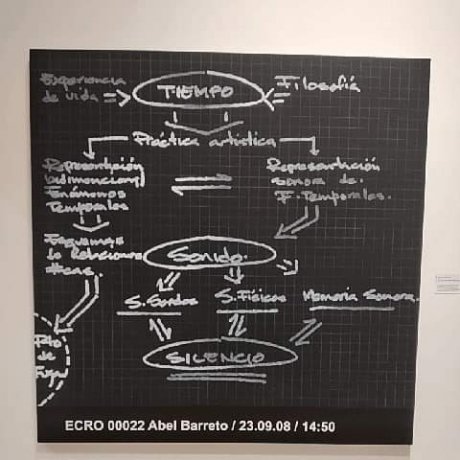 Experiencia
de vida
TIEMPO
Filosofía
Práctica artística
Representación
bidimencional
Fenómenos
Temporales
Representación
sonora de
F. Temporales.
Sonido.
S. Sordos
S. Físicos
Memoria Sonora.
Pto
de
Fuga
SILENCIO
ECRO 00022 Abel Barreto / 23.09.08 / 14:50